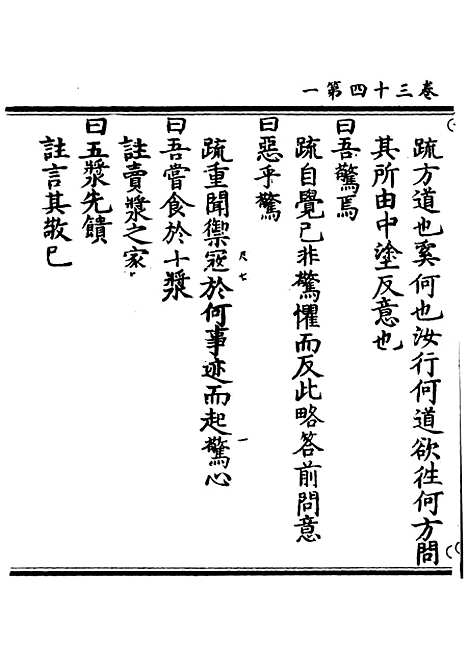 卷三十四第一
疏方道也奚何也汝行何道欲徃何方問
其所由中塗反意也
曰吾驚焉
疏自覺己非驚懼而反此略答前問意
曰惡乎驚
疏重聞禦寇於何事迹而起驚心
尺七
一
曰吾嘗食於十漿
註賣漿之家
曰五漿先饋
註言其敬已